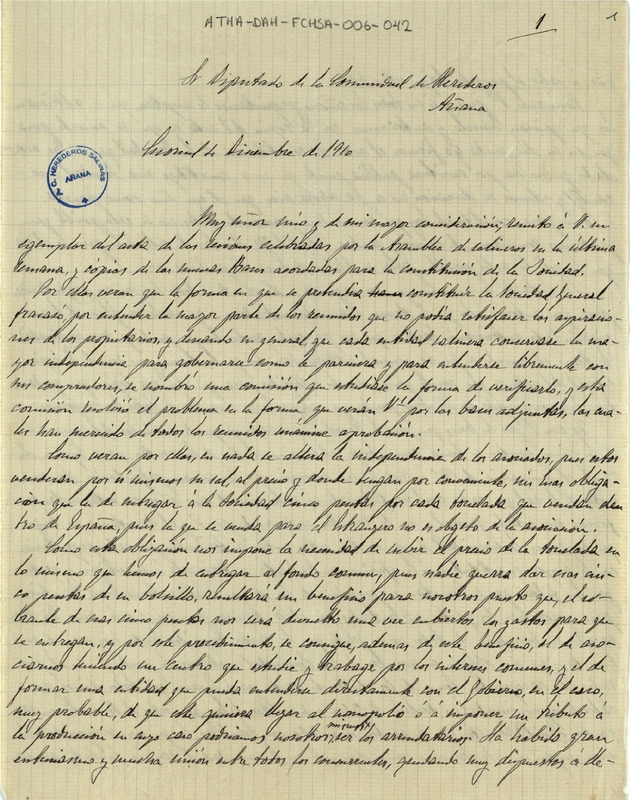 ATHA-DAH-FCHSA-006-042
1
1
Sr Diputado de la Comunidad de Herederos
Añana
de Diciembre de 1910
C. HEREDEROS SALINAS
AÑANA
Muy señor mio y de mi mayor consideración; remito á V. un
ejemplar del acta de las sesiones celebradas por la Asamblea de salineros en la última
semana, y cópias de las nuevas Bases acordadas para la constitución de la Sociedad.
Por ellas veran que la forma en que se pretendia constituir la Sociedad General
fracasó, por entender la mayor parte de los reunidos que no podia satisfacer las aspiracio-
nes de los propietarios, y deseando en general, que cada entidad salinera conservase la ma-
yor independencia para gobernarse como le pareciera y para entenderse libremente con
sus compradores, se nombró una comisión que estudiase la forma de verificarlo, y esta
comisión resolvió el problema en la forma que verán Vs por las bases adjuntas, las cua-
les han merecido de todos los reunidos unanime aprobación.
Como veran por ellas, en nada se altera la independencia de los asociados, pues estos
venderan por si mismos su sal, al precio y donde tengan por conveniente, sin mas obliga-
cion que la de entregar á la Sociedad cinco pesetas por cada tonelada que vendan den-
tro de España, pues la que se venda para el extrangero no es objeto de la asociación.
Como esta obligación nos impone la necesidad de subir el precio de la tonelada en
lo mismo que hemos de entregar al fondo comun, pues nadie querra dar esas cin-
co pesetas de su bolsillo, resultará un beneficio para nosotros puesto que, el so-
brante de esas cinco pesetas nos será devuelto una vez cubiertos los gastos para que
se entregan, y por este procedimiento, se consigue, ademas de este beneficio, el de aso-
ciarnos teniendo un Centro que estudie y trabage por los intereses comunes, y el de
formar una entidad que pueda entenderse directamente con el Gobierno, en el caso,
muy probable, de que este quisiera llegar al monopolio ó á imponer un tributo á
la producción en cuyo caso podriamos nosotros, mismos ser los arrendatarios. Ha habido gran
entusiasmo y mucha unión entre todos los concurrentes, quedando muy dispuestos á lle-